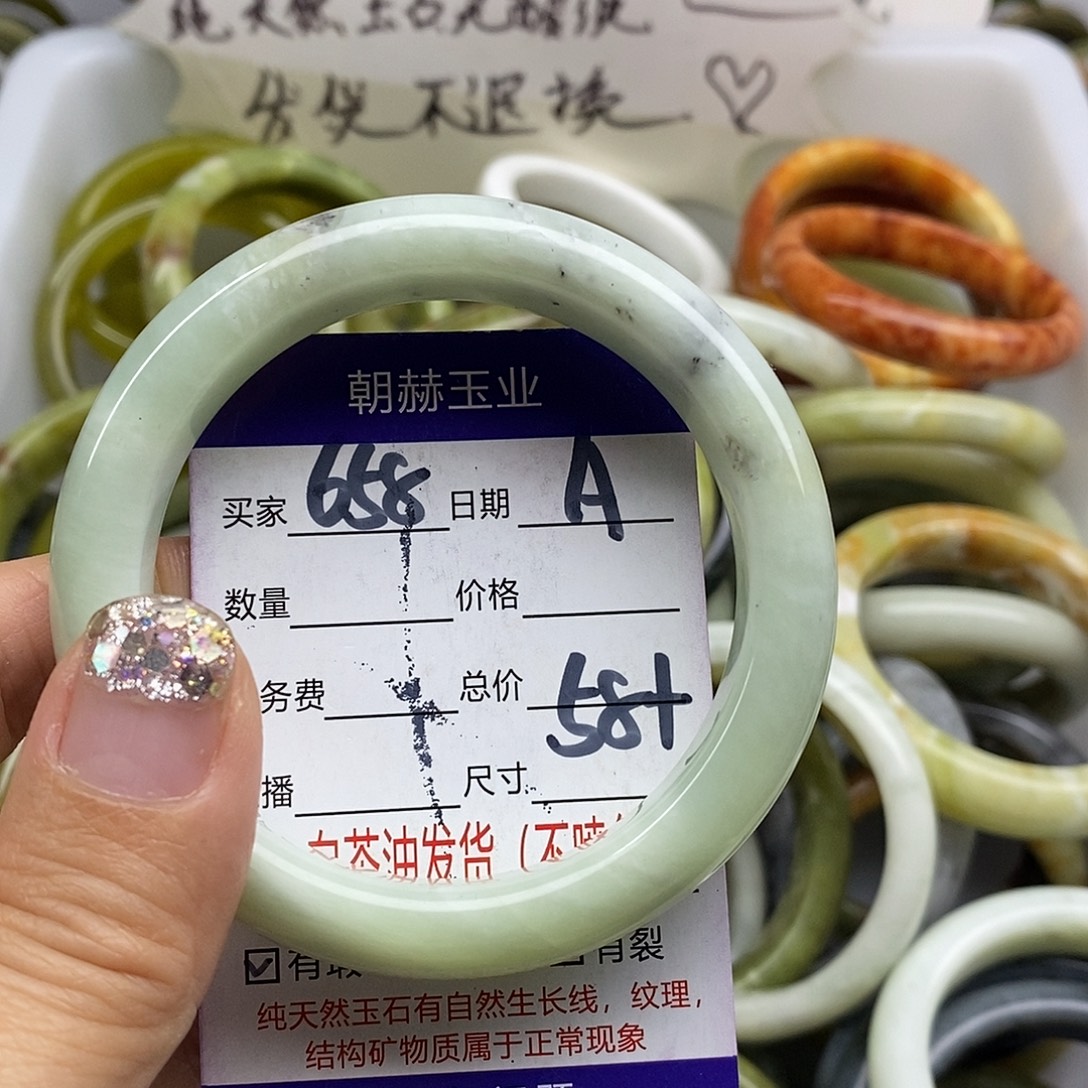 纯天然玉石无酸洗.
售货不退换. ♡
朝赫玉业
买家 658 日期 A
数量 价格
务费 总价 58+
播 尺寸
白茶油发货（不喷
有瑕 有裂
纯天然玉石有自然生长线，纹理，
结构矿物质属于正常现象